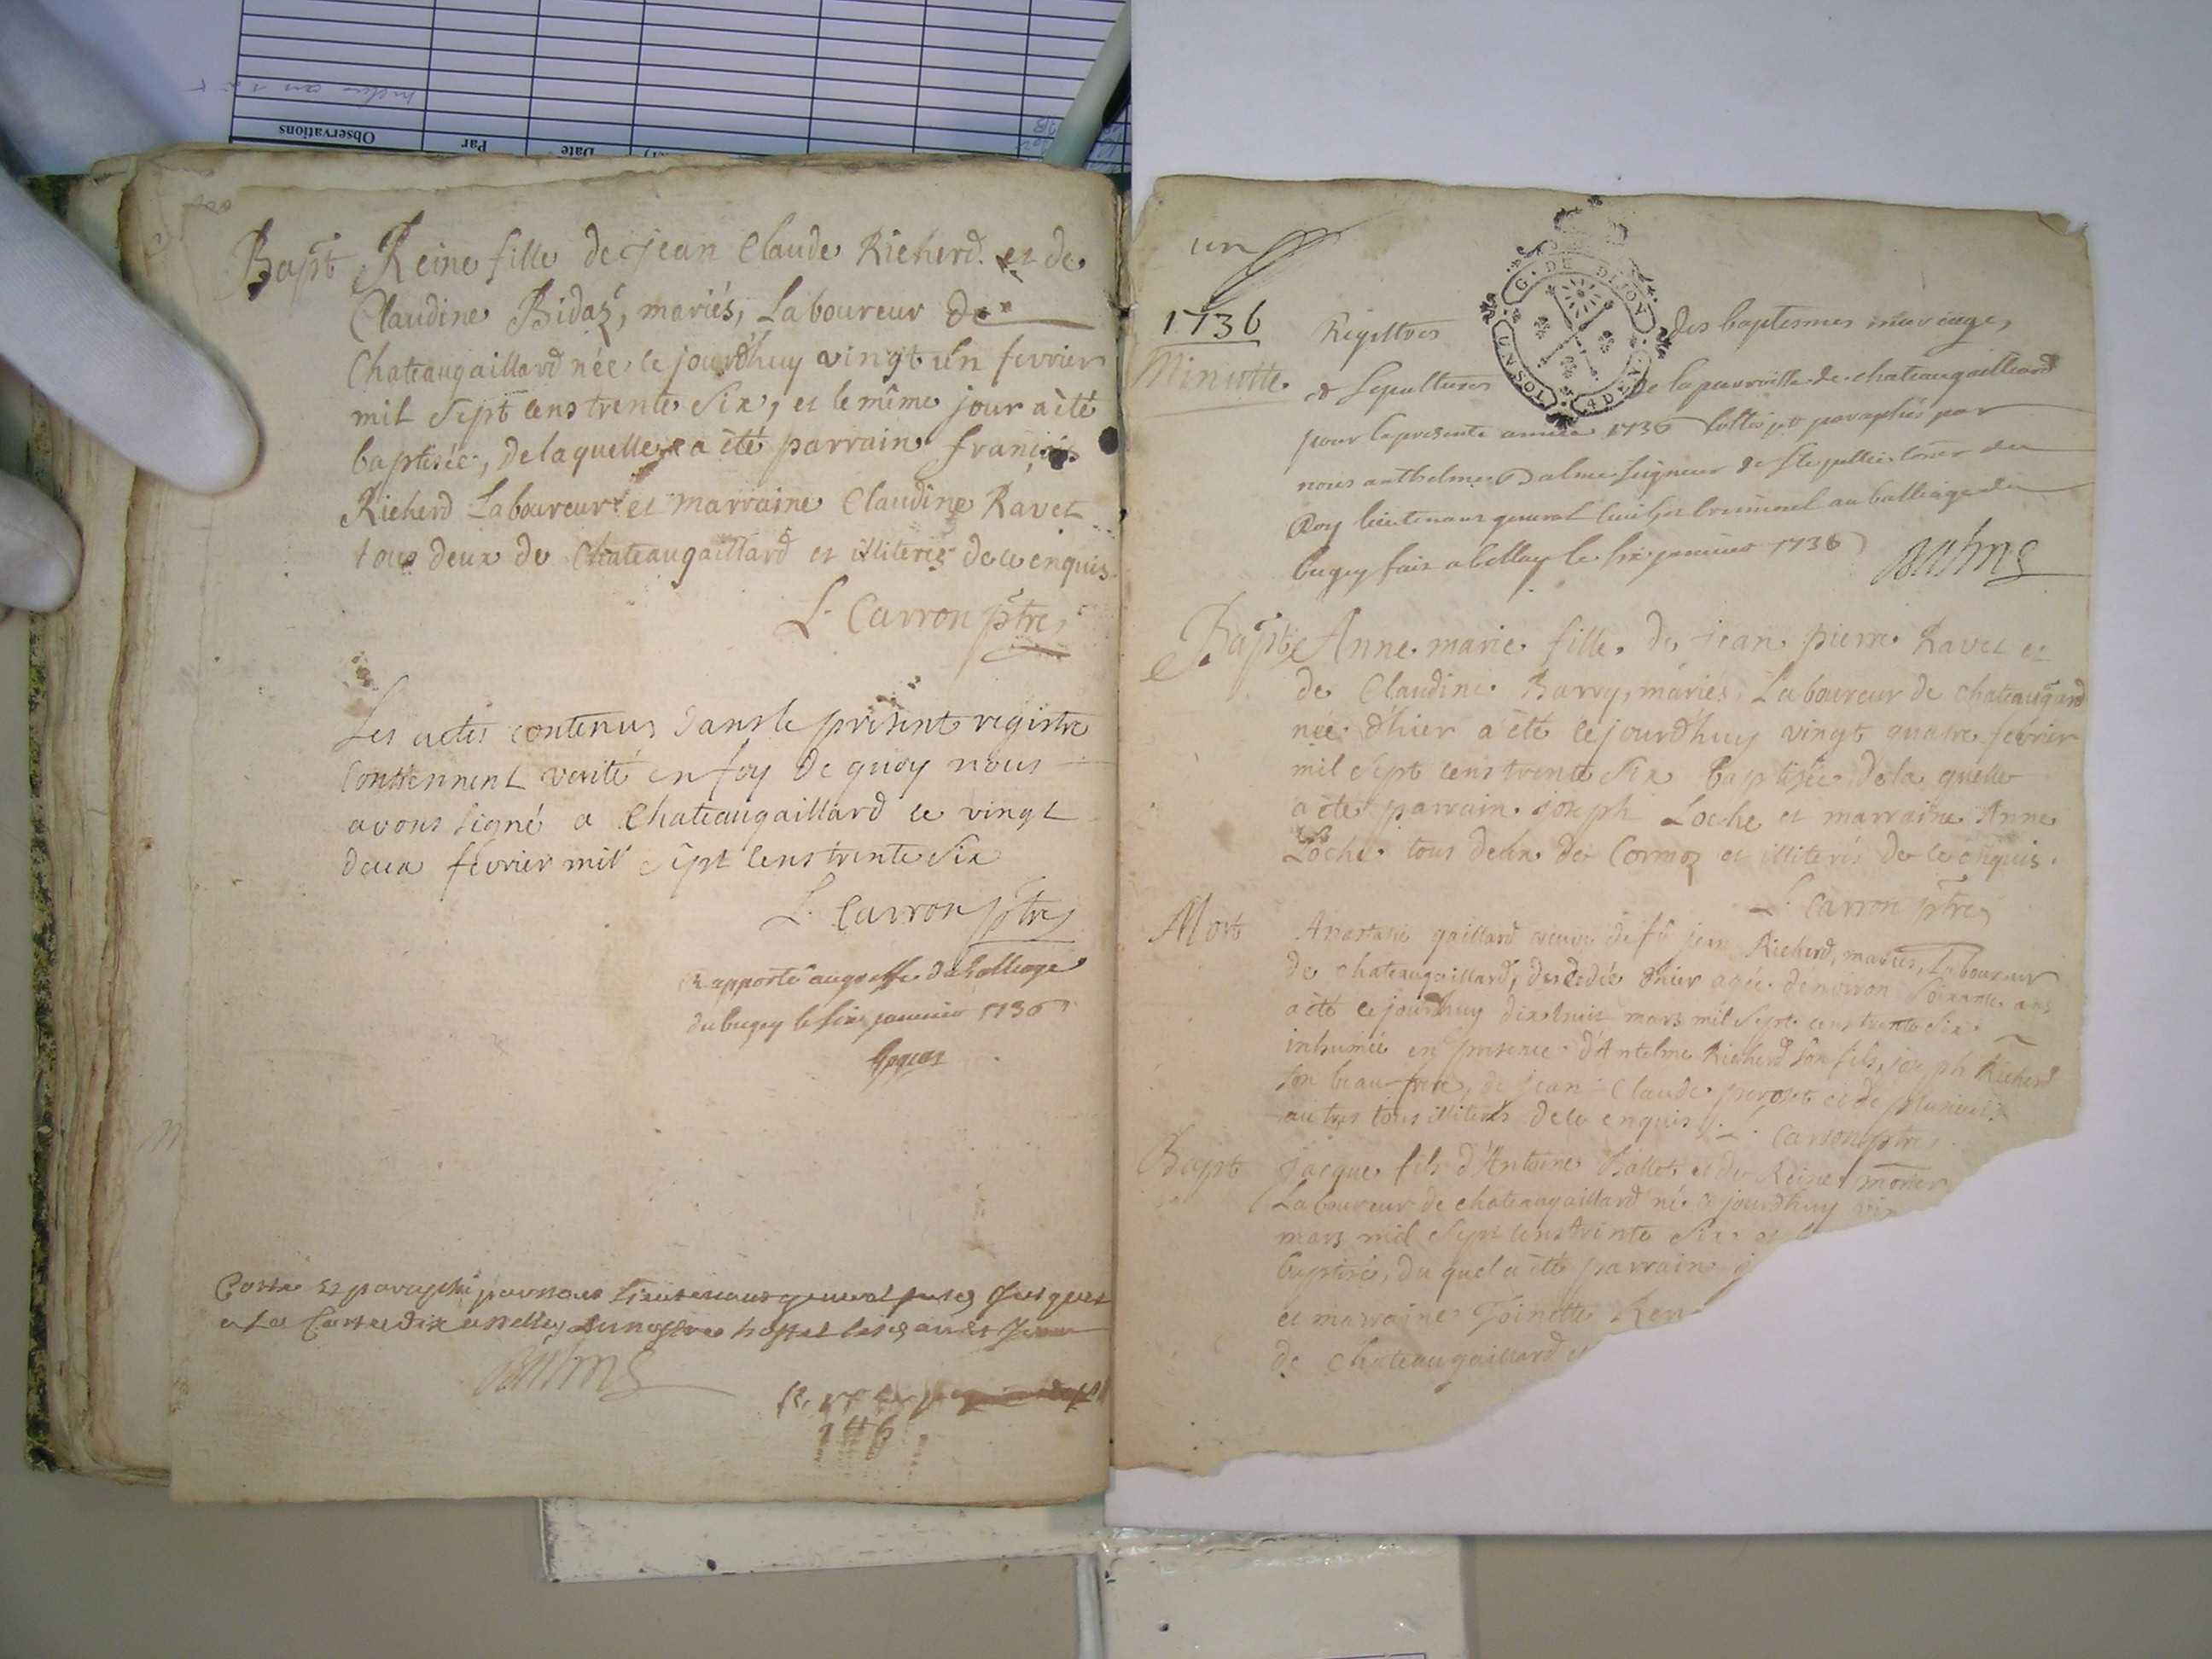 Observations
Par
Date
Bapt Reine fille de jean Claude Richerd et de
Claudine Bidaz, mariés, Laboureur de
Chateaugaillard née le jourd'huy vingt un fevrier
mil sept cens trente six, et le même jour a été
baptisée, de laquelle a été parrain françois
Richerd Laboureur et marraine Claudine Ravet
tous deux de Chateaugaillard et illiterés de ce enquis
L. Carron ptre
Les actes contenus dans le present registre
contiennent verité en foy de quoy nous
avons signé a Chateaugaillard ce vingt
deux février mil sept cens trente six
L. Carron ptre
Rapporté au greffe du balliage
du bugey le six janvier 1736
Cotté et paraphé par nous Lieutenant general jusques
a la
un
1736
Minutte
G. DE DIJON
UN SOL
4 DEN.
Registres des baptesmes mariages
& sepultures de la parroisse de chateaugaillard
pour la presente année 1736 cottés et paraphés par
nous anthelme Balme seigneur de
Roy lieutenant general civil et criminel au balliage du
bugey fait a bellay le six janvier 1736
Balme
Bapt Anne marie fille de jean pierre Ravet et
de Claudine Barry, mariés, Laboureur de chateaugard
née d'hier a été cejourd'huy vingt quatre février
mil sept cens trente six baptisée, de la quelle
a été parrain joseph Loche et marraine Anne
Loche tous deux de Cormoz et illiterés de ce enquis.
L. Carron ptre
Mort Anastasie gaillard veuve de fû jean Richerd, mariés, Laboureur
de chateaugaillard, decedée d'hier agée d'environ soixante ans
a été cejourd'huy dixhuit mars mil sept cens trente six
inhumée en presence d'Antelme Richerd son fils, joseph Richerd
son beau frere, de jean Claude perost et de plusieurs
autres tous illiterés de ce enquis L. Carron ptre
Bapt jacque fils d'Antoine Ballet et de Reine
Laboureur de chateaugaillard né cejourd'huy
mars mil sept cens trente six et l
baptisé, du quel a été parrain
et marraine Toinette
de Chateaugaillard et